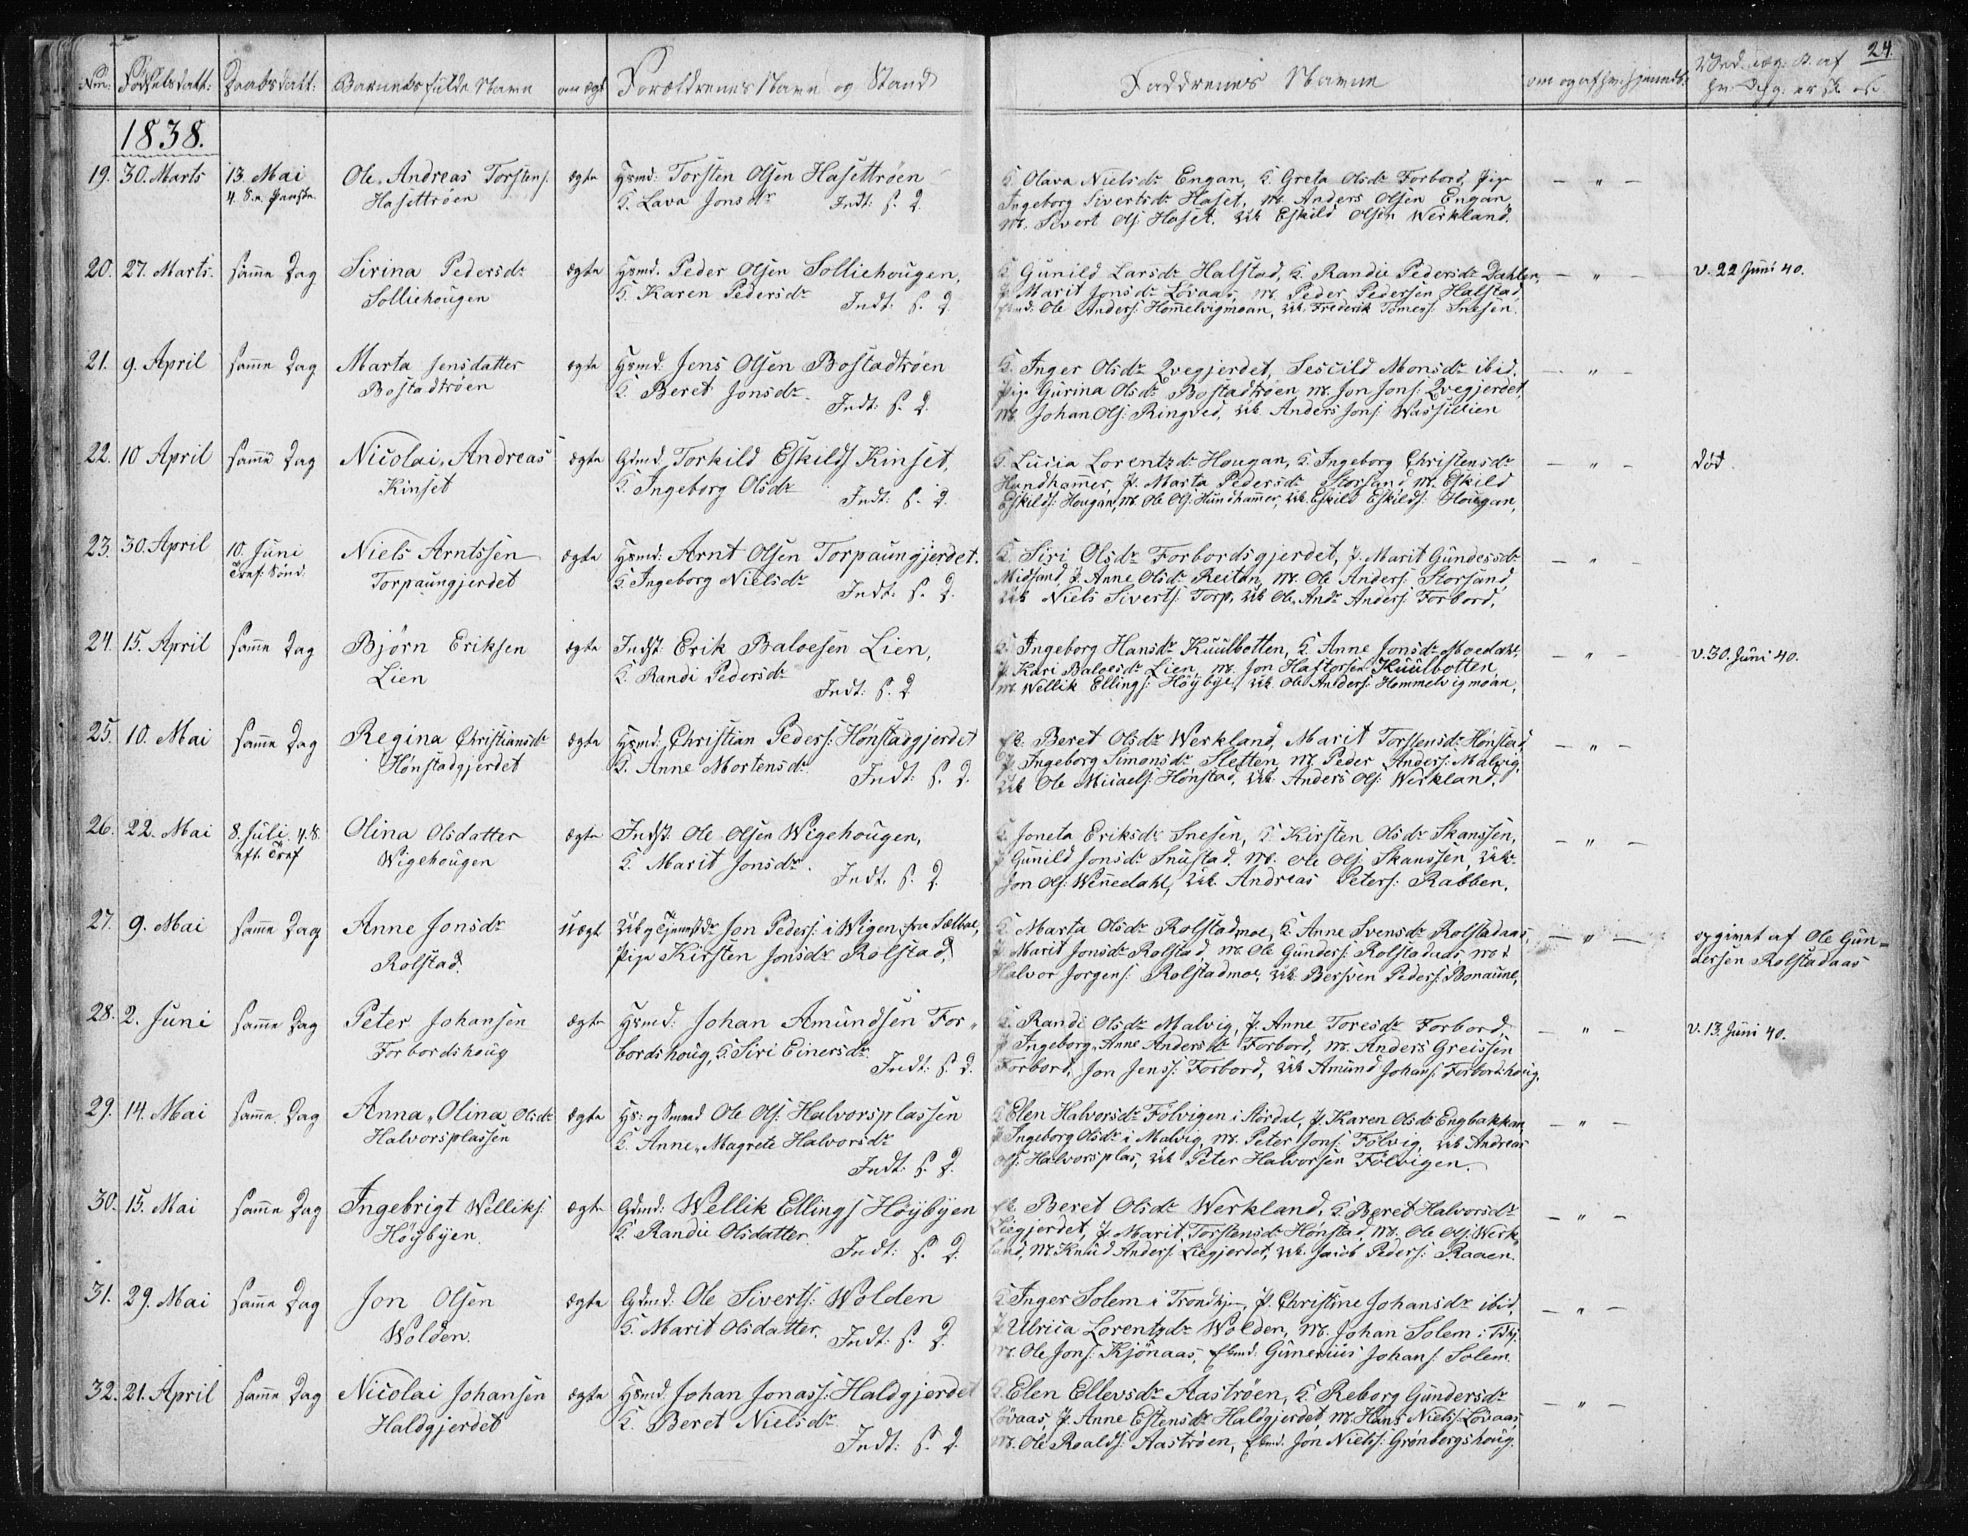 24.
Num: Fødselsdatt: Daabsdatt: Barnets fulde Navn om ægt Forældrenes Navn og Stand Faddrenes Navne om og af hv: hjemdb:
1838.
19. 30. Marts 13. Mai Ole Andreas Torstens: ægte Hsmd: Torsten Olsen Hasettrøen K. Olava Nielsdr Engan, K. Greta Olsdr Forbord, Pige — " —
4. S. e. Paaske. Hasettrøen K. Lava Jonsdr Indt: S. D. Ingeborg Sivertsdr Haset, M. Anders Olsen Engan,
M. Sivert Ols: Haset. Uk Eskild Olsen Werkland.
20. 27. Marts. samme Dag Sirina Pedersdr ægte Hsmd. Peder Olsen Solliehougen, K. Gunild Larsdr Halstad, K. Randie Pedersdr Dahlen, — " — v. 22 Juni 40.
Solliehougen K. Karen Pedersdr Indt: S. D. P. Marit Jonsdr Lövaas, M. Peder Pedersen Halstad,
Ole Anders: Hommelvigmoan, Uk. Frederik Tomes: Snesen.
21. 9. April samme Dag Marta Jensdatter ægte Hsmd: Jens Olsen Bostadtrøen K. Inger Olsdr Qvegjerdet, Sescild Monsdr ibid. — " —
Bostadtrøen K. Beret Jonsdr. Indt: S. D. Pige Gurina Olsdr Bostadtrøen, M. Jon Jons: Qvegjerdet,
M. Johan Ols: Ringved, Uk. Anders Jons: Wassillien
22. 10 April samme Dag Nicolai Andreas ægte Gdmd. Torkild Eskilds Kinset, K. Lucia Lorentzdr Hougan, K. Ingeborg Christensdr — " — død.
Kinset K. Ingeborg Olsdr Indt: S. D. Hundhamer, P. Marta Pedersdr Storsand, M. Eskild
Eskilds: Hougan, M. Ole Ols: Hundhammer, Uk. Eskild Eskilds: Hougan,
23. 30. April 10. Juni Niels Arntssen ægte Hsmd: Arnt Olsen Torpaungjerdet. K. Siri Olsdr Forbordsgjerdet, P. Marit Gundessdr — " —
Tref: Sönd. Torpaungjerdet K. Ingeborg Nielsdr Indt: S. D. Midsand, P. Anne Olsdr Reitan, M. Ole Anders: Storsand,
Uk Niels Siverts: Torp, Uk Ole Andr Anders: Forbord.
24. 15. April samme Dag Bjørn Eriksen ægte Indst: Erik Baloesen Lien, K. Ingeborg Hansdr Kuulbotten, K. Anne Jonsdr Moedahl, — " — v. 30. Juni 40.
Lien K. Randi Pedersdr Indt: S. D. P. Kari Baloesdr Lien, M. Jon Haftorsen Kuulbotten,
M. Wellik Ellings: Höybye, Uk Ole Anders: Hommelvigmoan,
25. 10. Mai samme Dag Regina Christiansdr ægte Hsmd: Christian Peders: Hönstadgjerdet Beret Olsdr Werkland, Marit Torstensdr Hönstad — " —
Hönstadgjerdet K. Anne Mortensdr. Indt: S. D. P. Ingeborg Simonsdr Sletten, M. Peder Anders: Malvig,
Uk Ole Micaels: Hönstad, Uk. Anders Ols: Werkland.
26. 22. Mai 8. Juli 4. S. Olina Olsdatter ægte Indst: Ole Olsen Wigehougen, K. Joneta Eriksdr Snesen, K. Kirsten Olsdr Skanssen, — " —
eft. Tref Wigehougen K. Marit Jonsdr. Indt. S. D. P. Gunild Jonsdr Snustad, M. Ole Ols: Skanssen, Uk
Jon Ols: Wennedahl, Uk. Andreas Peters: Rabben.
27. 9. Mai samme Dag Anne Jonsdr uægt Jon Peders: i Wigen, fra Sælboe, K. Marta Olsdr Rolstadmoe, K. Anne Svensdr Rolstadaas, — " — opgivet af Ole Gun-
Rolstad. Pige Kirsten Jonsdr Rolstad. P. Marit Jonsdr Rolstad, M. Ole Gunders: Rolstadaas, M.
dersen Rolstadaas
Halvor Jorgens: Rolstadmoe, Uk. Bersven Peders: Bonaune.
28. 2. Juni samme Dag Peter Johansen ægte Hsmd: Johan Amundsen For- K. Randi Olsdr Malvig, P. Anne Toresdr Forbord, — " — v. 13. Juni 40.
Forbordshoug bordshoug, K. Siri Einersdr Indt: S. D. P. Ingeborg Anne Andersdr Forbord, M. Anders Greissen
Forbord, Jon Jenss: Forbord, Uk Amund Johans: Forbordshoug,
29. 14. Mai samme Dag Anna Olina Olsdr ægte Hs: og Smed Ole Ols: Halvorsplassen K. Elen Halvorsdr Fölvigen i Stördal, P. Karen Olsdr Engbakkan — " —
Halvorsplassen K. Anne Magrete Halvorsdr Indt: S. D. P. Ingeborg Olsdr i Malvig, M. Peter Jons: Fölvig, Uk Andreas
Ols: Halvorsplas, Uk Peter Halvorsen Fölvigen.
30. 15. Mai samme Dag Ingebrigt Welliks: ægte Gdmd: Wellik Ellings Höybyen Beret Olsdr Werkland, K. Beret Halvorsdr — " —
Höybyen. K. Randie Olsdatter. Indt: S. D. Liegjerdet, P. Marit Torstensdr Hönstad, M. Ole Ols: Werk-
land, M. Knud Anders: Liegjerdet, Uk. Jacob Peders: Raaen.
31. 29. Mai samme Dag Jon Olsen ægte Gdmd: Ole Siverts: Wolden K. Inger Solem i Trondhjem, P. Christine Johansdr ibid. — " —
Wolden. K. Marit Olsdatter. Indt: S. D. P. Ulricia Lorentzdr Wolden, M. Johan Solem i Thj.
M. Ole Jons: Kjönaas, Gunerius Johans: Solem.
32. 21. April samme Dag Nicolai Johansen ægte Hsmd. Johan Jonass: Haldgjerdet K. Elen Ellevsdr Aastrøen, K. Reborg Gundersdr — " —
Haldgjerdet K. Beret Nielsdr. Indt: S. D. Lövaas, P. Anne Estensdr Haldgjerdet, M. Hans Niels: Lövaas,
M. Ole Roalds: Aastrøen, Jon Niels: Grönborgshoug.